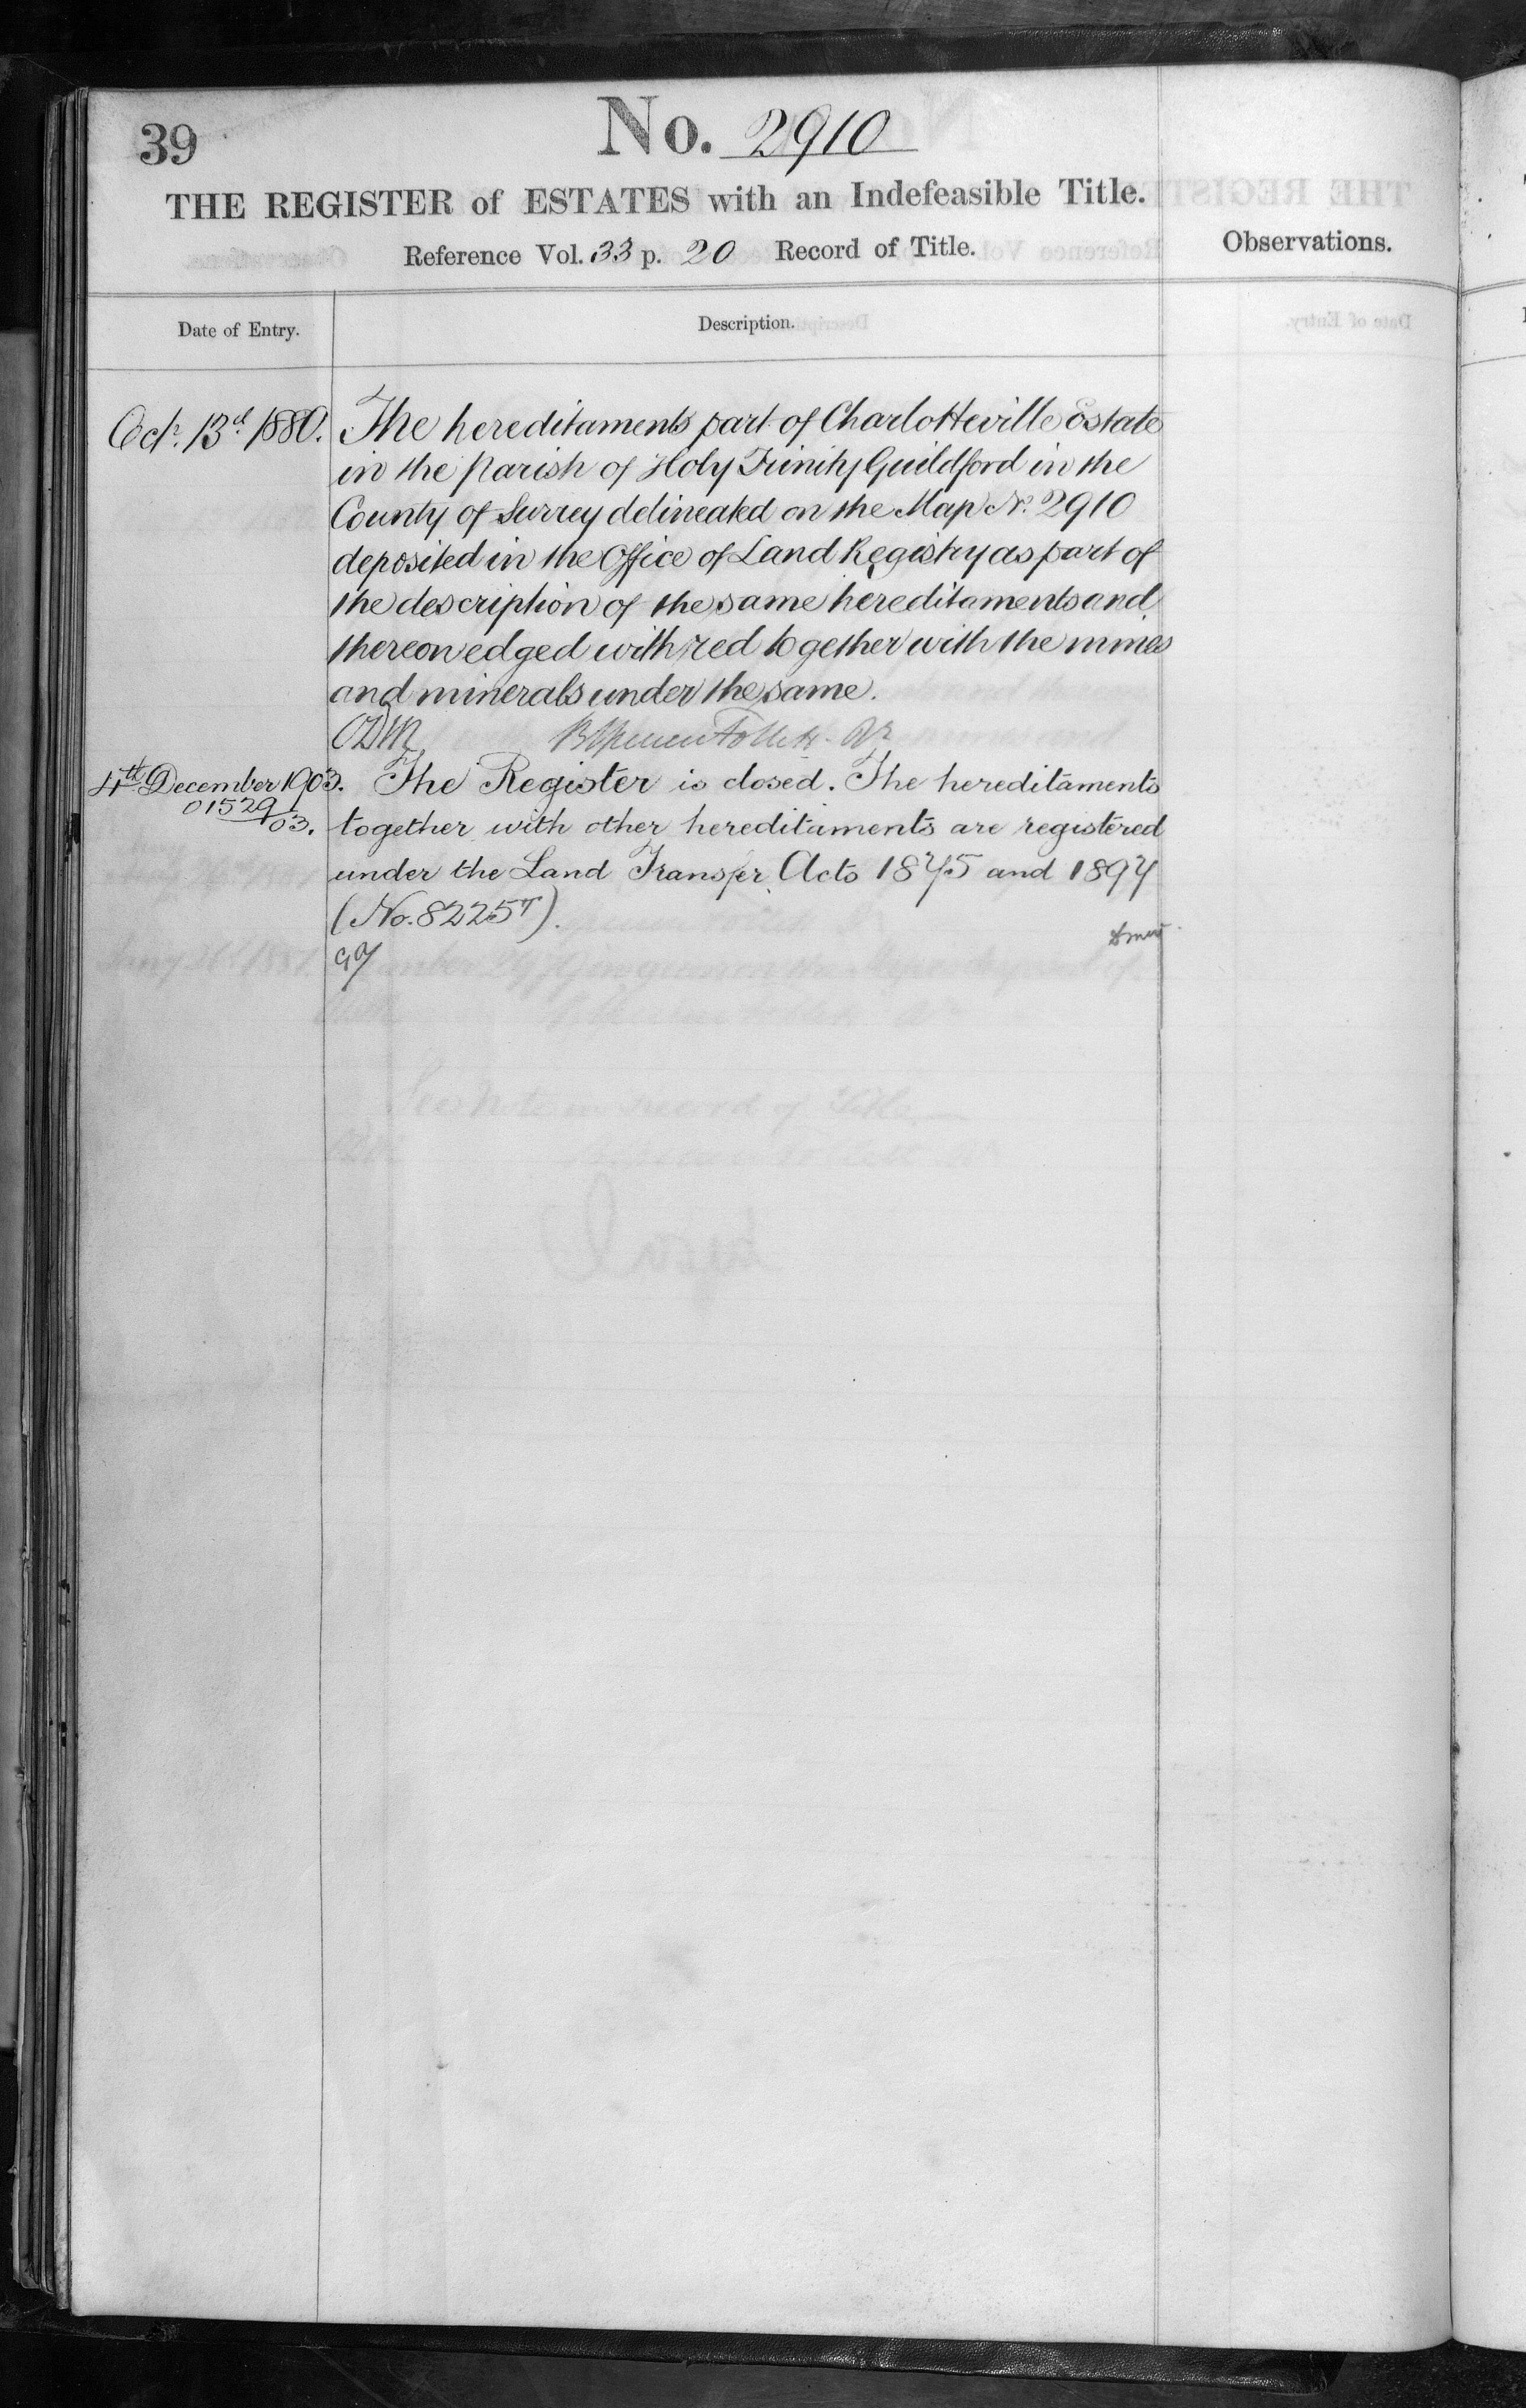 39
No. 2910
THE REGISTER of ESTATES with an Indefeasible Title.
Reference Vol. 33 p. 20 Record of Title.
Observations.
Date of Entry.
Description.
Octr. 13th 1880. The hereditaments part of Charlotteville Estate
in the Parish of Holy Trinity Guildford in the
County of Surrey delineated on the Map No. 2910
deposited in the Office of Land Registry as part of
the description of the same hereditaments and
thereon edged with red together with the mines
and minerals under the same.
4th December 1903. The Register is closed. The hereditaments
01529/03. together with other hereditaments are registered
under the Land Transfer Acts 1875 and 1897
(No. 8225T).